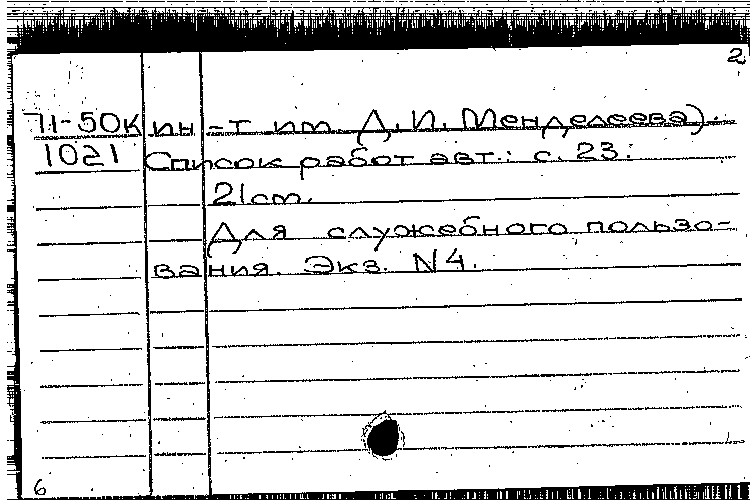 2
71-50К ин-т им. Д.И. Менделеева).
1021 Список работ авт.: с. 23.
21 cm.
Для служебного пользо-
вания. Экз. N 4.
6